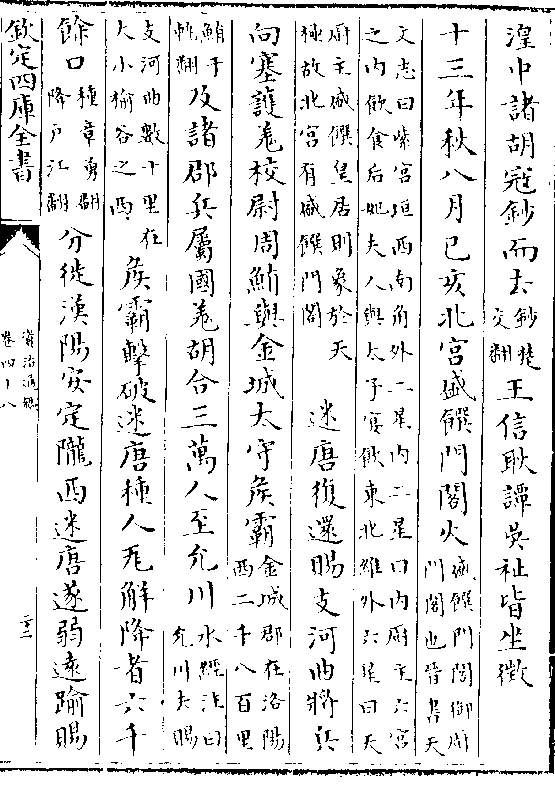 湟中諸胡寇鈔而去鈔楚交翻王信耿譚吳祉皆坐徵
十三年秋八月己亥北宮盛饌門閣火盛饌門閣御厨門閣也晉書天
文志曰紫宮垣西南角外二星内二星曰内厨主六宮之内飲食后妃夫人與太子宴飲東北維外六星曰天
厨主盛饌皇居則象於天極故北宮有盛饌門閣迷唐復還賜支河曲將兵
向塞護羌校尉周鮪與金城太守矦霸金城郡在洛陽西二千八百里
鮪于軌翻及諸郡兵屬國羌胡合三萬人至允川水經注曰允川去賜
支河曲數十里在大小榆谷之西矦霸擊破迷唐種人瓦解降者六千
餘口種章勇翻降户江翻分徙漢陽安定隴西迷唐遂弱遠踰賜
欽定四庫全書
資治通鑑
卷四十八
二十二